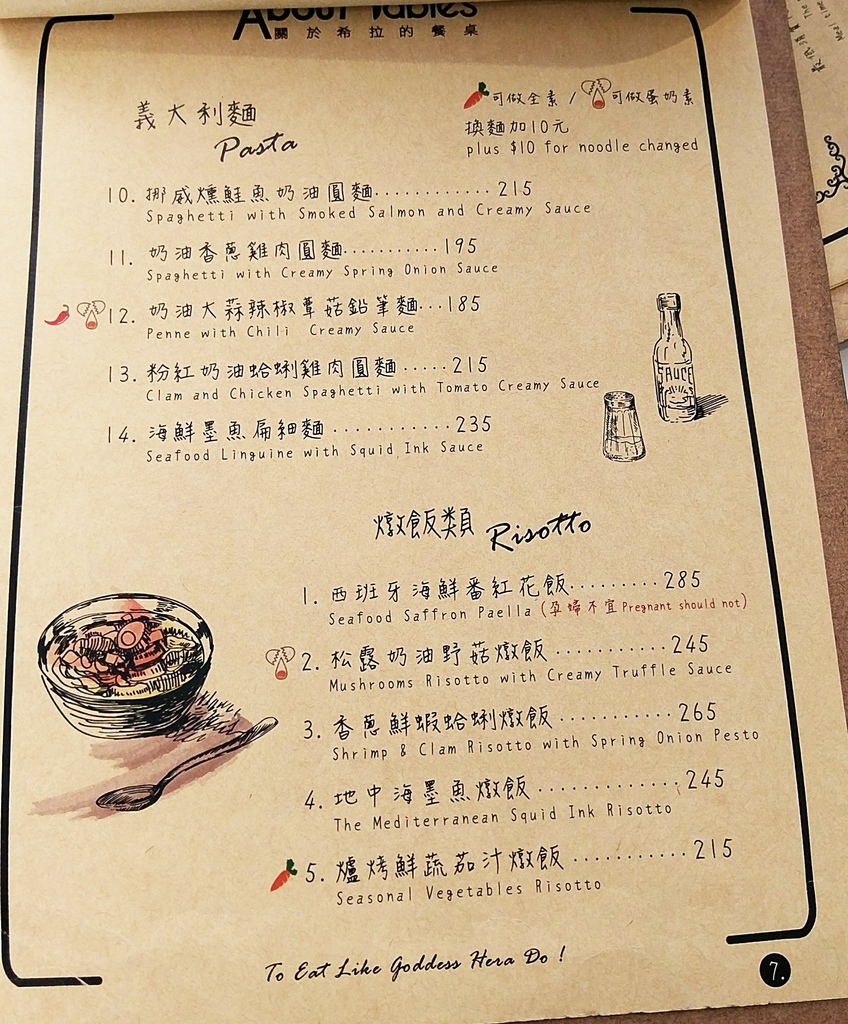 About Tables
關於希拉的餐桌
可做全素 / 可做蛋奶素
換麵加10元
plus $10 for noodle changed
義大利麵
Pasta
10. 挪威燻鮭魚奶油圓麵............215
Spaghetti with Smoked Salmon and Creamy Sauce
11. 奶油香蔥雞肉圓麵..........195
Spaghetti with Creamy Spring Onion Sauce
12. 奶油大蒜辣椒蕈菇鉛筆麵...185
Penne with Chili Creamy Sauce
13. 粉紅奶油蛤蜊雞肉圓麵.....215
Clam and Chicken Spaghetti with Tomato Creamy Sauce
14. 海鮮墨魚扁細麵............235
Seafood Linguine with Squid Ink Sauce
SAUCE
燉飯類 Risotto
1. 西班牙海鮮番紅花飯.........285
Seafood Saffron Paella (孕婦不宜 Pregnant should not)
2. 松露奶油野菇燉飯...........245
Mushrooms Risotto with Creamy Truffle Sauce
3. 香蔥鮮蝦蛤蜊燉飯...........265
Shrimp & Clam Risotto with Spring Onion Pesto
4. 地中海墨魚燉飯..............245
The Mediterranean Squid Ink Risotto
5. 爐烤鮮蔬茄汁燉飯...........215
Seasonal Vegetables Risotto
To Eat Like Goddess Hera Do !
7.